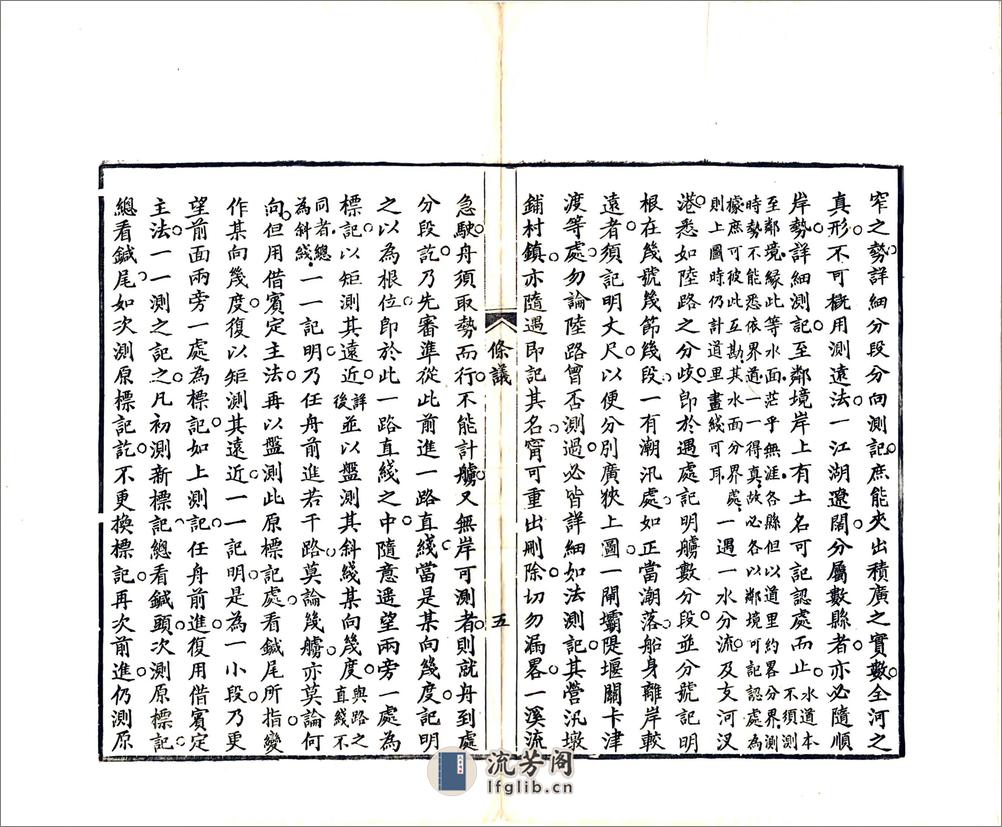 窄之勢詳細分段分向測記庶能夾出積廣之實數全河之
真形不可槪用測遠法一江湖遼闊分屬數縣者亦必隨順
岸勢詳細測記至鄰境岸上有土名可記認處而止水道本不須測
至鄰境緣此等水面茫乎無涯各縣但以道里約畧分界測
時勢不能悉依界道一一得真故必各以鄰境可記認處為
據庶可彼此互勘其水面分界處
則上圖時仍計道里畫綫可耳一遇一水分流及支河汊
港悉如陸路之分歧卽於遇處記明艣數分段並分號記明
根在幾號幾節幾段一有潮汛處如正當潮落船身離岸較
遠者須記明丈尺以便分別廣狹上圖一閘壩隄堰關卡津
渡等處勿論陸路曾否測過必皆詳細如法測記其營汛墩
鋪村鎮亦隨遇卽記其名甯可重出刪除切勿漏畧一溪流
條議
五
急駛舟須取勢而行不能計艣又無岸可測者則就舟到處
分段訖乃先審準從此前進一路直綫當是某向幾度記明
之以為根位卽於此一路直綫之中隨意遥望兩旁一處為
標記以矩測其遠近詳後並以盤測其斜綫某向幾度與路之直綫不
同者總為斜綫一一記明乃任舟前進若干路莫論幾艣亦莫論何
向但用借賓定主法再以盤測此原標記處看鍼尾所指變
作某向幾度復以矩測其遠近一一記明是為一小段乃更
望前面兩旁一處為標記如上測記任舟前進復用借賓定
主法一一測之記之凡初測新標記總看鍼頭次測原標記
總看鍼尾如次測原標記訖不更換標記再次前進仍測原
流芳阁
lfglib.cn